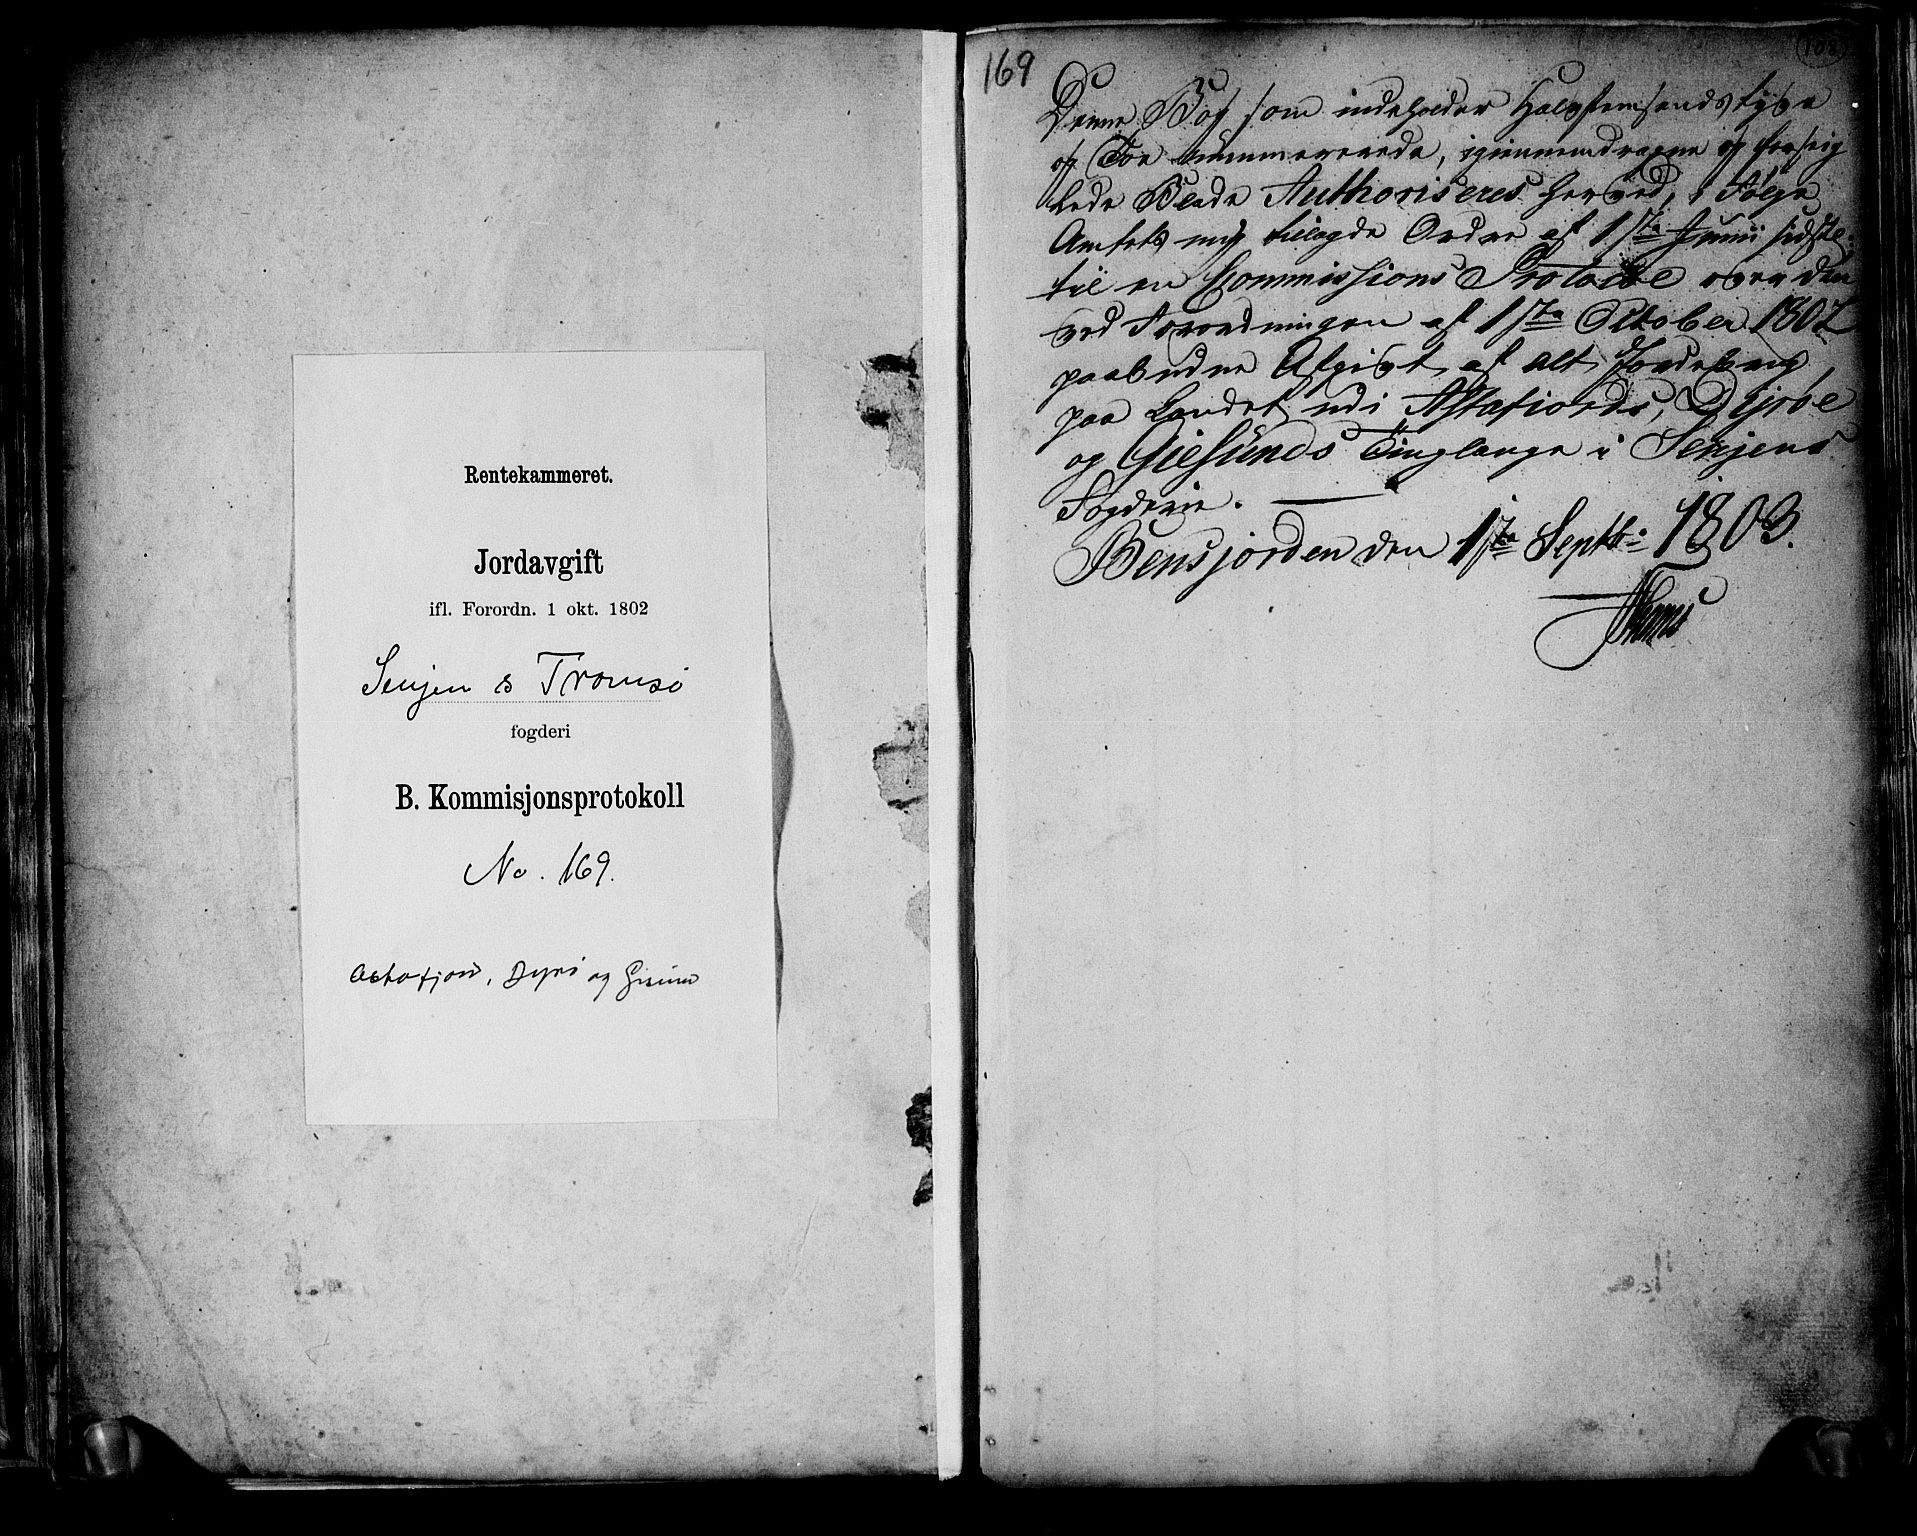 Rentekammeret.
Jordavgift
ifl. Forordn. 1 okt. 1802
Senjen & Tromsö
fogderi
B. Kommisjonsprotokoll
No. 169.
Astafjord, Dyrö og Gisund
169
Denne Bog som indeholder Halvfemsindstyve
og Toe nummererede, igiennemdragne og forseig
lede Blade Authoriseres herved, i Følge
Amtets mig tillagde Ordre af 1ste Junii sidstl:
til en Commissions Protocol over den
ved Forordningen af 1ste October 1802
paabudne Afgivt af alt Jordebrug
paa Landet udi Astafiords, Dyrøe
og Giesunds Tinglauge i Senjens
Fogderie.
Bensjorden den 1te Septb: 1803.